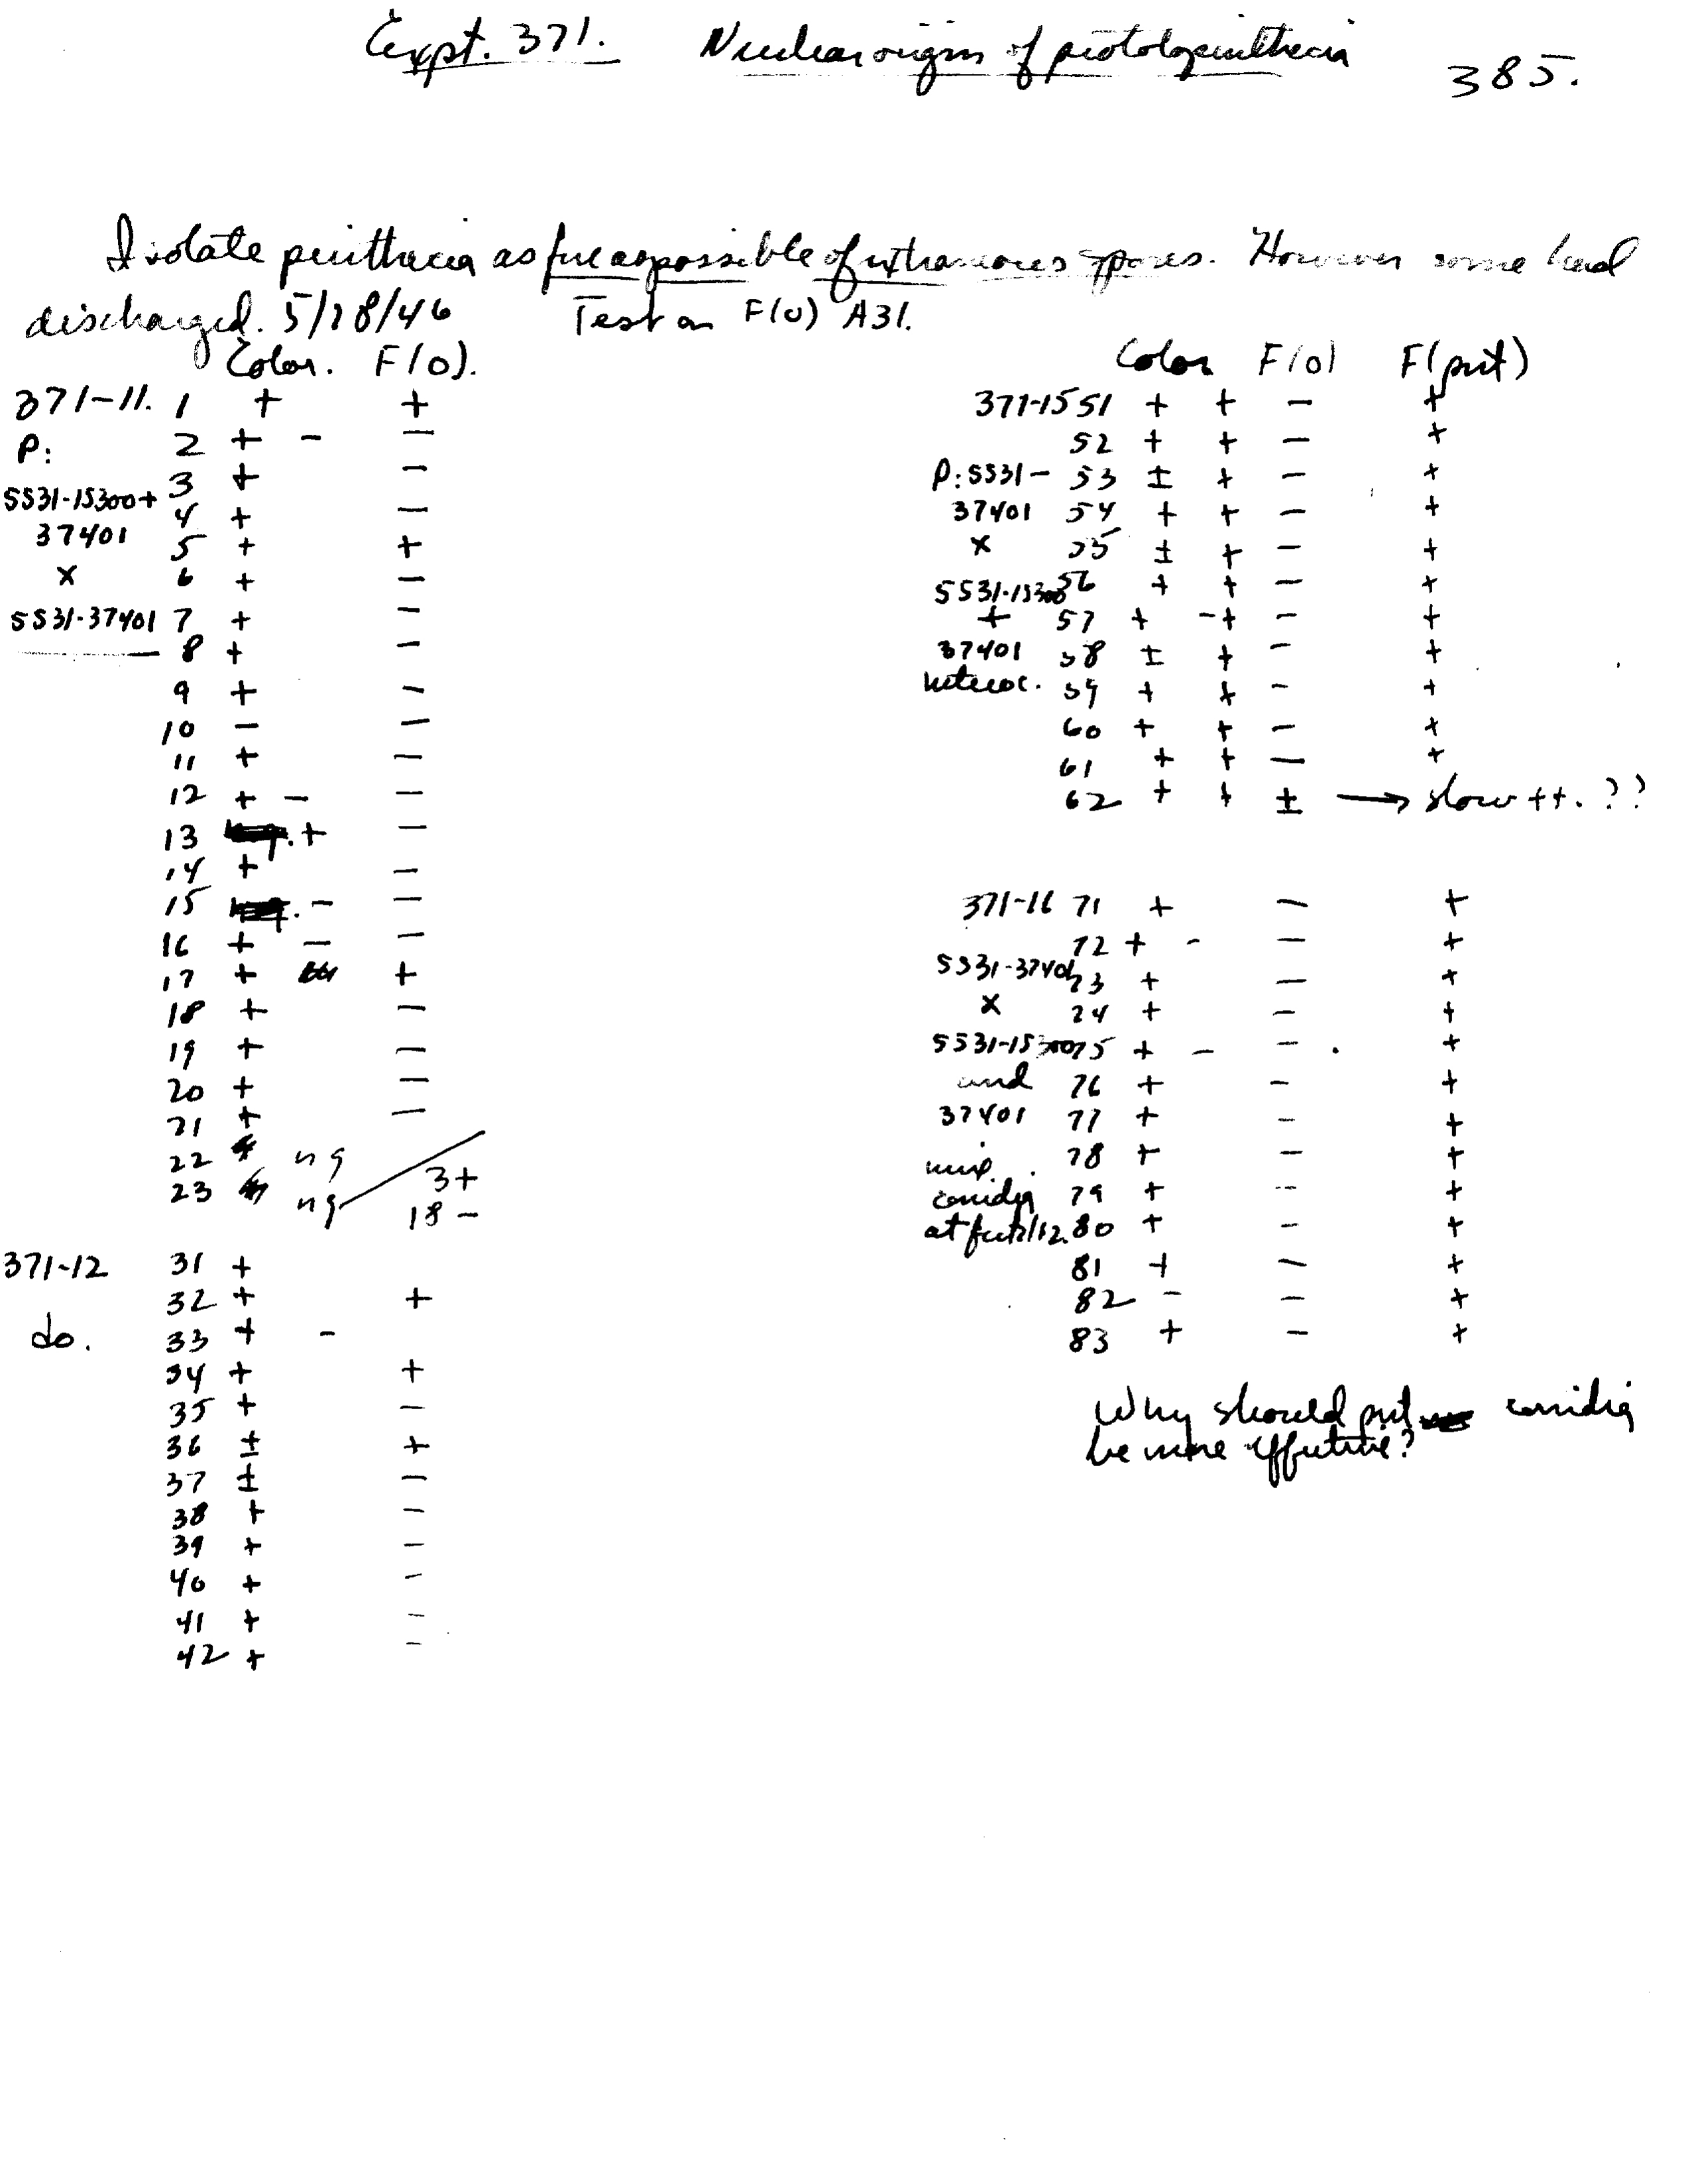 Expt. 371. Nuclear origin of protoperithecia 385.
Isolate perithecia as free as possible of extraneous spores. However some had
discharged. 5/28/46 Test on F(0) A31.
Color. F(0).
371-11. 1 + +
P: 2 + - -
3 + -
5531-15300+
37401
x
5531-37401
4 + -
5 + +
6 + -
7 + -
8 + -
9 + -
10 - -
11 + -
12 + - -
13 + -
14 + -
15 - -
16 + - -
17 + +
18 + -
19 + -
20 + -
21 + -
22 ng
23 ng
3+
18 -
371-12 31 +
32 + +
do. 33 + -
34 + +
35 + -
36 ± +
37 ± -
38 + -
39 + -
40 + -
41 + -
42 + -
Color F(0) F(pert)
371-15 51 + + - +
52 + + - +
P: 5531- 53 ± + - +
37401 54 + + - +
x 55 ± + - +
5531-15300 56 + + - +
+ 57 + -+ - +
37401 58 ± + - +
heteroc. 59 + + - +
60 + + - +
61 + + - +
62 + + ± → slow ++. ??
371-16 71 + - +
72 + - - +
5531-37401 73 + - +
x 74 + - +
5531-15300 75 + - - +
and 76 + - +
37401 77 + - +
mix. 78 + - +
conidia 79 + - +
at fertiliz. 80 + - +
81 + - +
82 - - +
83 + - +
Why should pert conidia
be more effective?